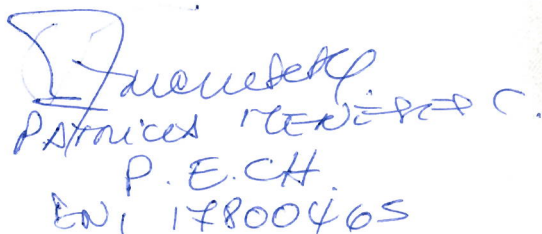 PATRICIA MENESES C.
P.E.CH.
DNI 17800465